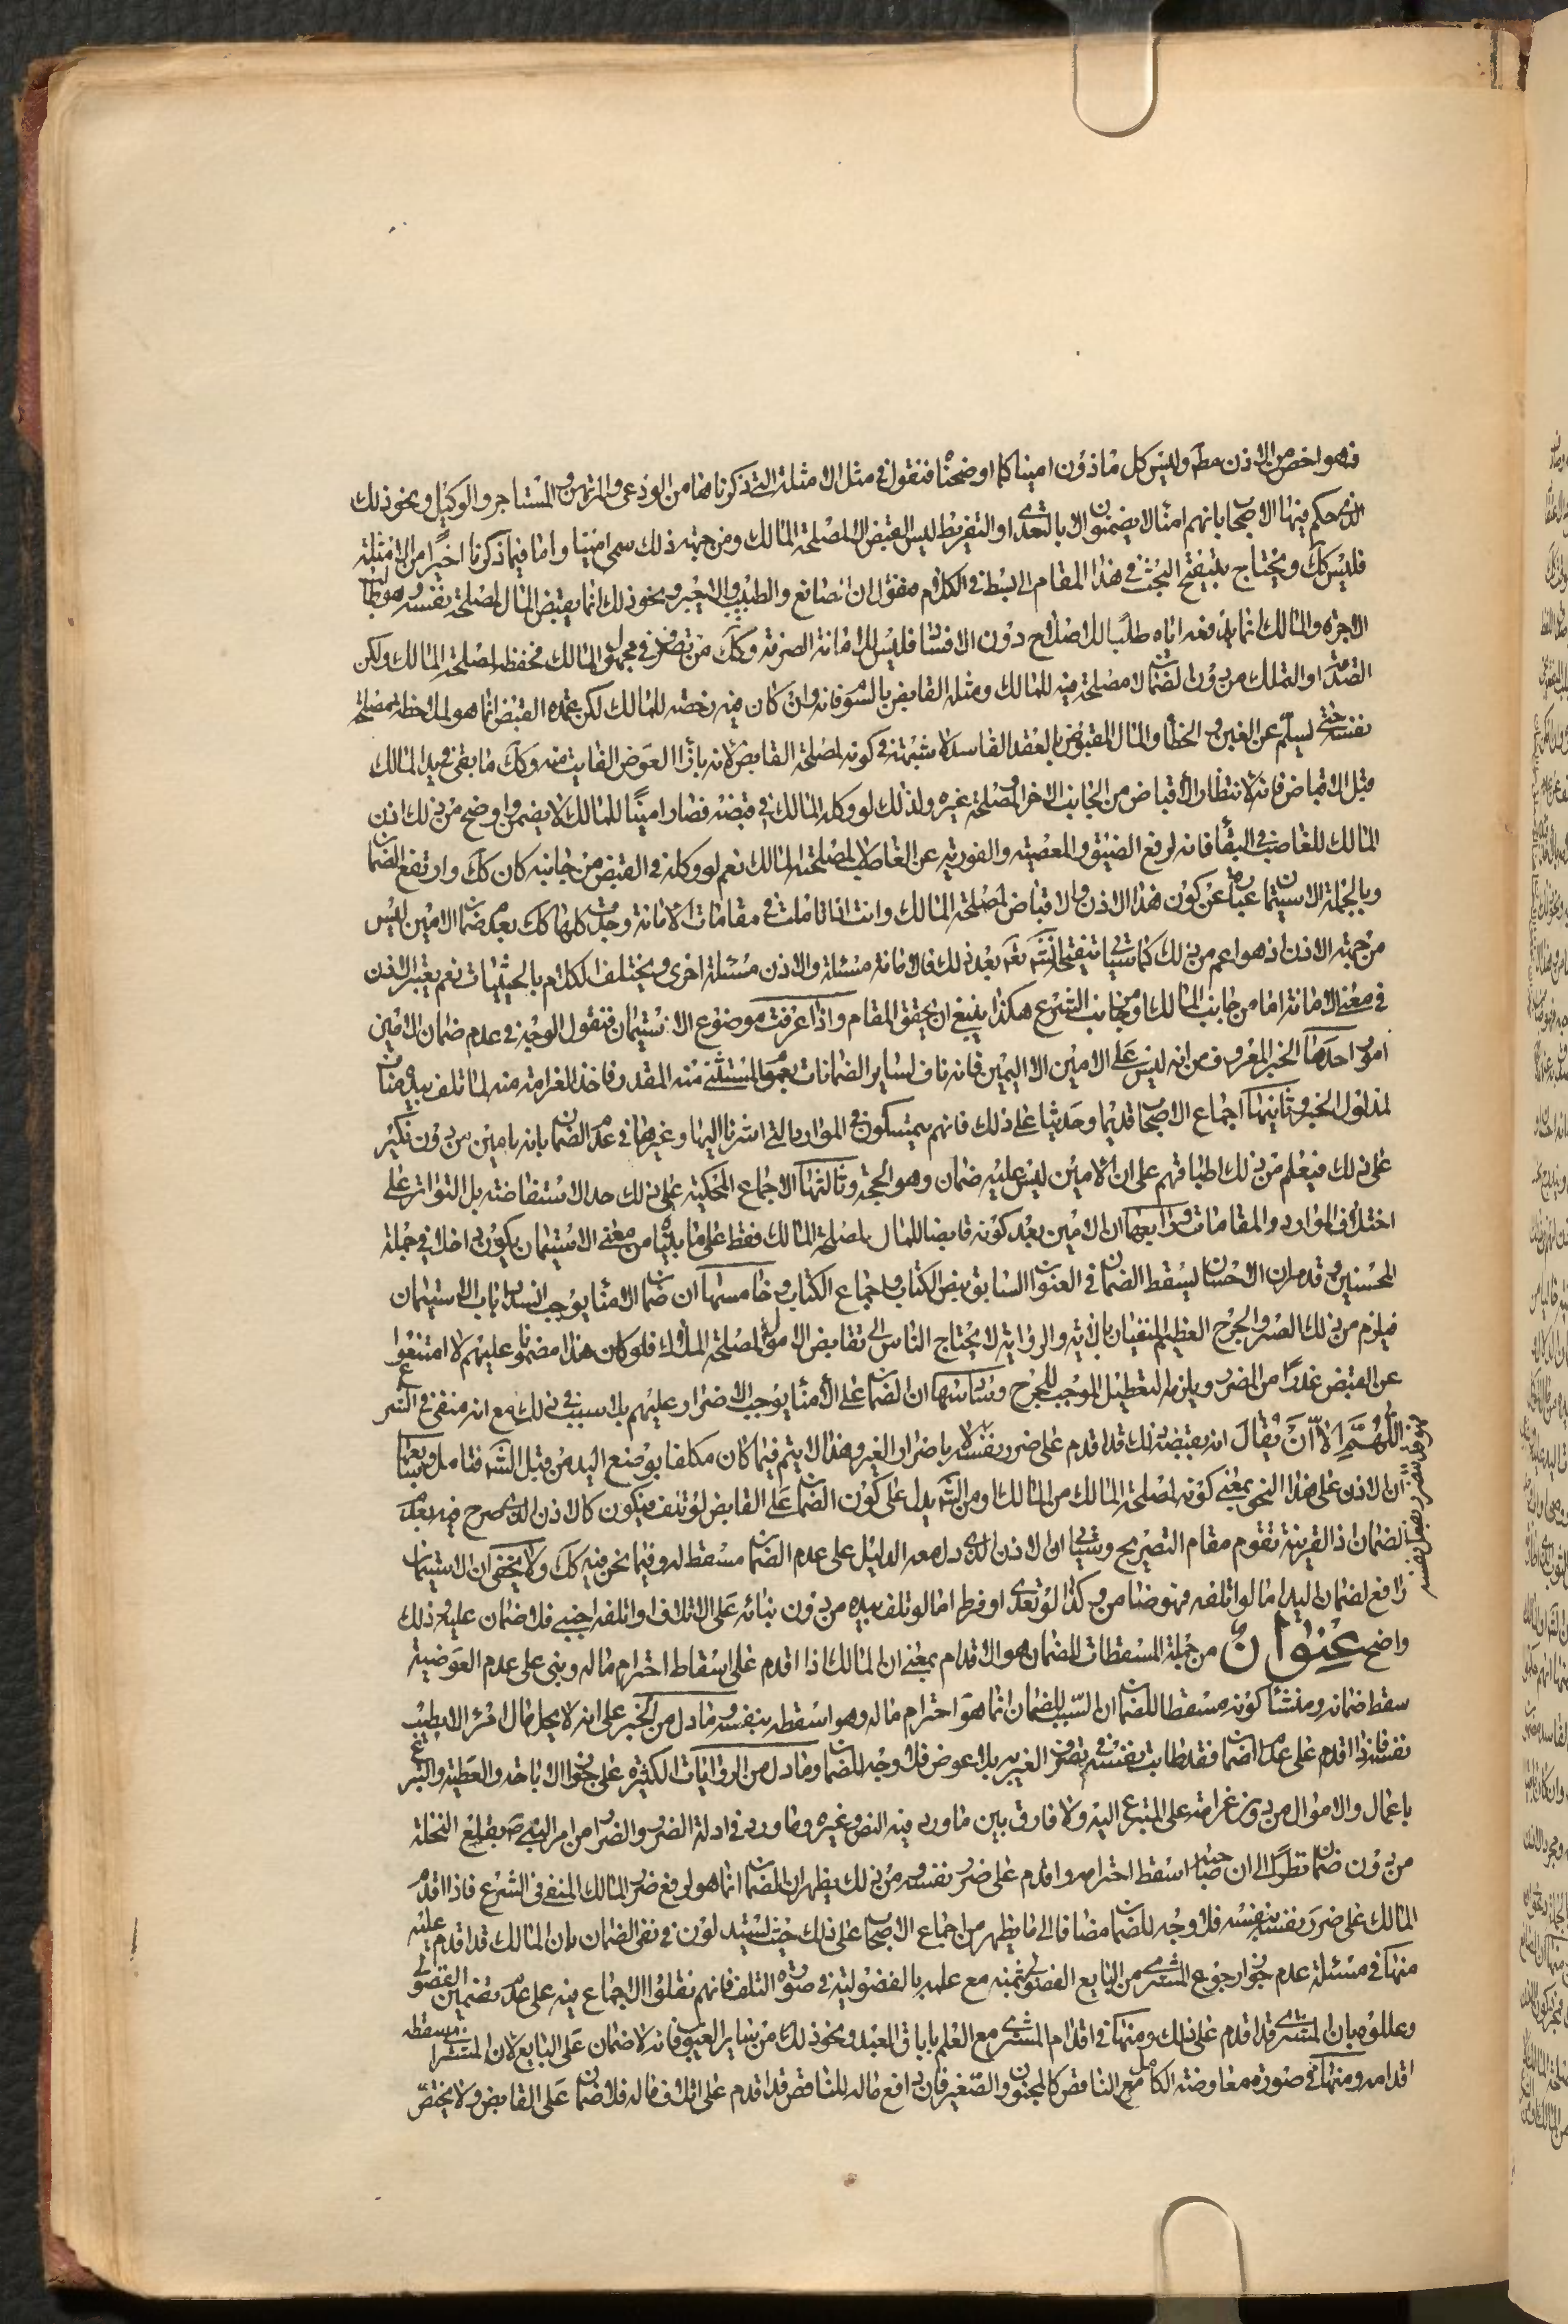 فهو اخص من الاذن مط وليس كل ماذون امينا كما اوضحنا فنقول في مثل الامثلة التي ذكرناها من الودعي والمرتهن والمستاجر والوكيل ونحو ذلك
الذي حكم فيها الاصحاب بانهم امنا لا يضمنون الا بالتعدي او التفريط ليس القبض الا لمصلحة المالك ومن جهة ذلك سمي امينا واما فيما ذكرنا اخيرا من الامثلة
فليس كك ويحتاج تنقيح البحث في هذا المقام الى بسط في الكلام فنقول ان الصانع والطبيب والاجير ونحو ذلك انما يقبض المال لمصلحة نفسه وهو
الاجرة والمالك انما يدفعه اياه طلبا للاصلاح دون الافساد فليس للامانة الصرفة وكك من تصرف في مجهول المالك فحفظه لمصلحة المالك ولكن
التصدق او التملك من دون الضمان لا مصلحة فيه للمالك ومثله القابض بالسوم فانه وان كان فيه رخصة للمالك لكن عمدة القبض انما هو لملاحظة مصلحة
نفسه حتى ليسلم عن الغبن والخطأ والمال المقبوض بالعقد الفاسد لا شبهة في كونه لمصلحة القابض لانه بازاء العوض الفايت منه وكك ما بقي في يد المالك
قبل الاقباض فانه لانتظار الاقباض من الجانب الاخر لا لمصلحة غيره ولذلك لو وكله المالك في قبضه فصار امينا للمالك لا يضمن واوضح من ذلك اذن
المالك للغاصب في البقاء فانه لرفع الضيق والمعصية والفورية عن الغاصب لا لمصلحة المالك نعم لو وكله في القبض من جانبه كان كك وارتفع الضمان
وبالجملة الاستيمان عبارة عن كون هذا الاذن والاقباض لمصلحة المالك وانت اذا تاملت في مقامات الامانة وجدت كلها كك بعد ضمان الامين ليس
من جهة الاذن اذ هو اعم من ذلك كما سياتي تنقيحه انشاء الله تعالى بعد ذلك فالامانة مسئلة والاذن مسئلة اخرى ويختلف الكلام بالحيثيات نعم يعتبر الاذن
في معنى الامانة اما من جانب المالك او من جانب الشرع هكذا ينبغي ان يحقق المقام واذا عرفت موضوع الاستيمان فنقول الوجه في عدم ضمان الامين
امور احدها الخبر المعروف من انه ليس على الامين الا اليمين فانه ناف لساير الضمانات بعموم المستثنى منه المقدر فاخذ الغرامة منه لما تلف بيده مناف
لمدلول الخبر وثانيها اجماع الاصحاب قديما وحديثا على ذلك فانهم يتمسكون في الموارد التي اشرنا اليها وغيرها في عدم الضمان بانه امين من دون نكير
على ذلك فيعلم من ذلك اطباقهم على ان الامين ليس عليه ضمان وهو الحجة وثالثها الاجماع المحكية على ذلك حد الاستفاضة بل التواتر على
اختلاف الموارد والمقامات ورابعها ان الامين بعد كونه قابضا للمال لمصلحة المالك فقط على ما بيناه من معنى الاستيمان يكون داخلا في جملة
المحسنين وقد مر ان الاحسان يسقط الضمان في العنوان السابق بنص الكتاب واجماع الكتاب وخامسها ان ضمان الامناء يوجب انسداد باب الاستيمان
فيلزم من ذلك العسر والحرج العظيم المنفيان بالاية والرواية لاحتياج الناس الى تقابض الاموال لمصلحة الملاك فلو كان هذا مضمونا عليهم لامتنعوا
عن القبض غدرا من الضرر ويلزم التعطيل الموجب للحرج وسادسها ان الضمان على الامناء يوجب الاضرار عليهم بلا سبب في ذلك مع انه منفي في الشرع
اللهم الا ان يقال انه بقبضه ذلك قد اقدم على ضرر نفسه لا باضرار الغير وهذا لا يتم فيما كان مكلفا بوضع اليد من قبل الشرع فتامل وسابعها
ان الاذن على هذا النحو بمعنى كونه لمصلحة المالك من المالك او من الشرع يدل على كون الضمان على القابض لو تلف فيكون كالاذن الذي صرح فيه بعدم
الضمان اذ القرينة تقوم مقام التصريح وسياتي ان الاذن الذي دل معه الدليل على عدم الضمان مسقط له وفيما نحن فيه كك ولا يخفى ان الاستيمان
رافع لضمان اليد اما لو اتلفه فهو ضامن وكذا لو تعدى او فرط اما لو تلف بيده من دون بنائه على الاتلاف او اتلفه اجنبي فلا ضمان عليه وذلك
واضح عنوان من جملة المسقطات للضمان هو الاقدام بمعنى ان المالك اذا اقدم على اسقاط احترام ماله وبنى على عدم العوضية
سقط ضمانه ومنشأ كونه مسقطا للضمان ان السبب للضمان انما هو احترام ماله وهو اسقطه بنفسه وما دل من الخبر على انه لا يحل مال امرء الا بطيب
نفسه فاذا اقدم على عدم الضمان فقد طابت نفسه في تصرف الغير به بلا عوض فلا وجه للضمان وما دل من الروايات الكثيرة على جواز الاباحة والعطية والتبرع
باعمال والاموال من دون غرامة على المتبرع اليه ولا فارق بين ما ورد فيه النص وغيره وما ورد في ادلة الضرر والضرار من امر النبي ص بقلع النخلة
من دون ضمان نظرا الى ان صاحبه اسقط احترامه واقدم على ضرر نفسه ومن ذلك يظهر ان الضمان انما هو لرفع ضرر المالك المنفي في الشرع فاذا اقدم
المالك على ضرر نفسه بنفسه فلا وجه للضمان مضافا الى ما يظهر من اجماع الاصحاب على ذلك حيث يستدلون في نفي الضمان بان المالك قد اقدم عليه
منها في مسئلة عدم جواز رجوع المشتري من البايع الفضولي بثمنه مع علمه بالفضولية في صورة التلف فانهم نقلوا الاجماع فيه على عدم تضمين الفضولي
وعللوه بان المشتري قد اقدم على ذلك ومنها في اقدام المشتري مع العلم باباق العبد ونحو ذلك من ساير العيوب فانه لا ضمان على البايع لان المشتري اسقطه
اقدامه ومنها في صورة معاوضة الكامل مع الناقص كالمجنون والصغير فان دافع ماله للناقص قد اقدم على اتلاف ماله فلا ضمان على القابض ولا يختص